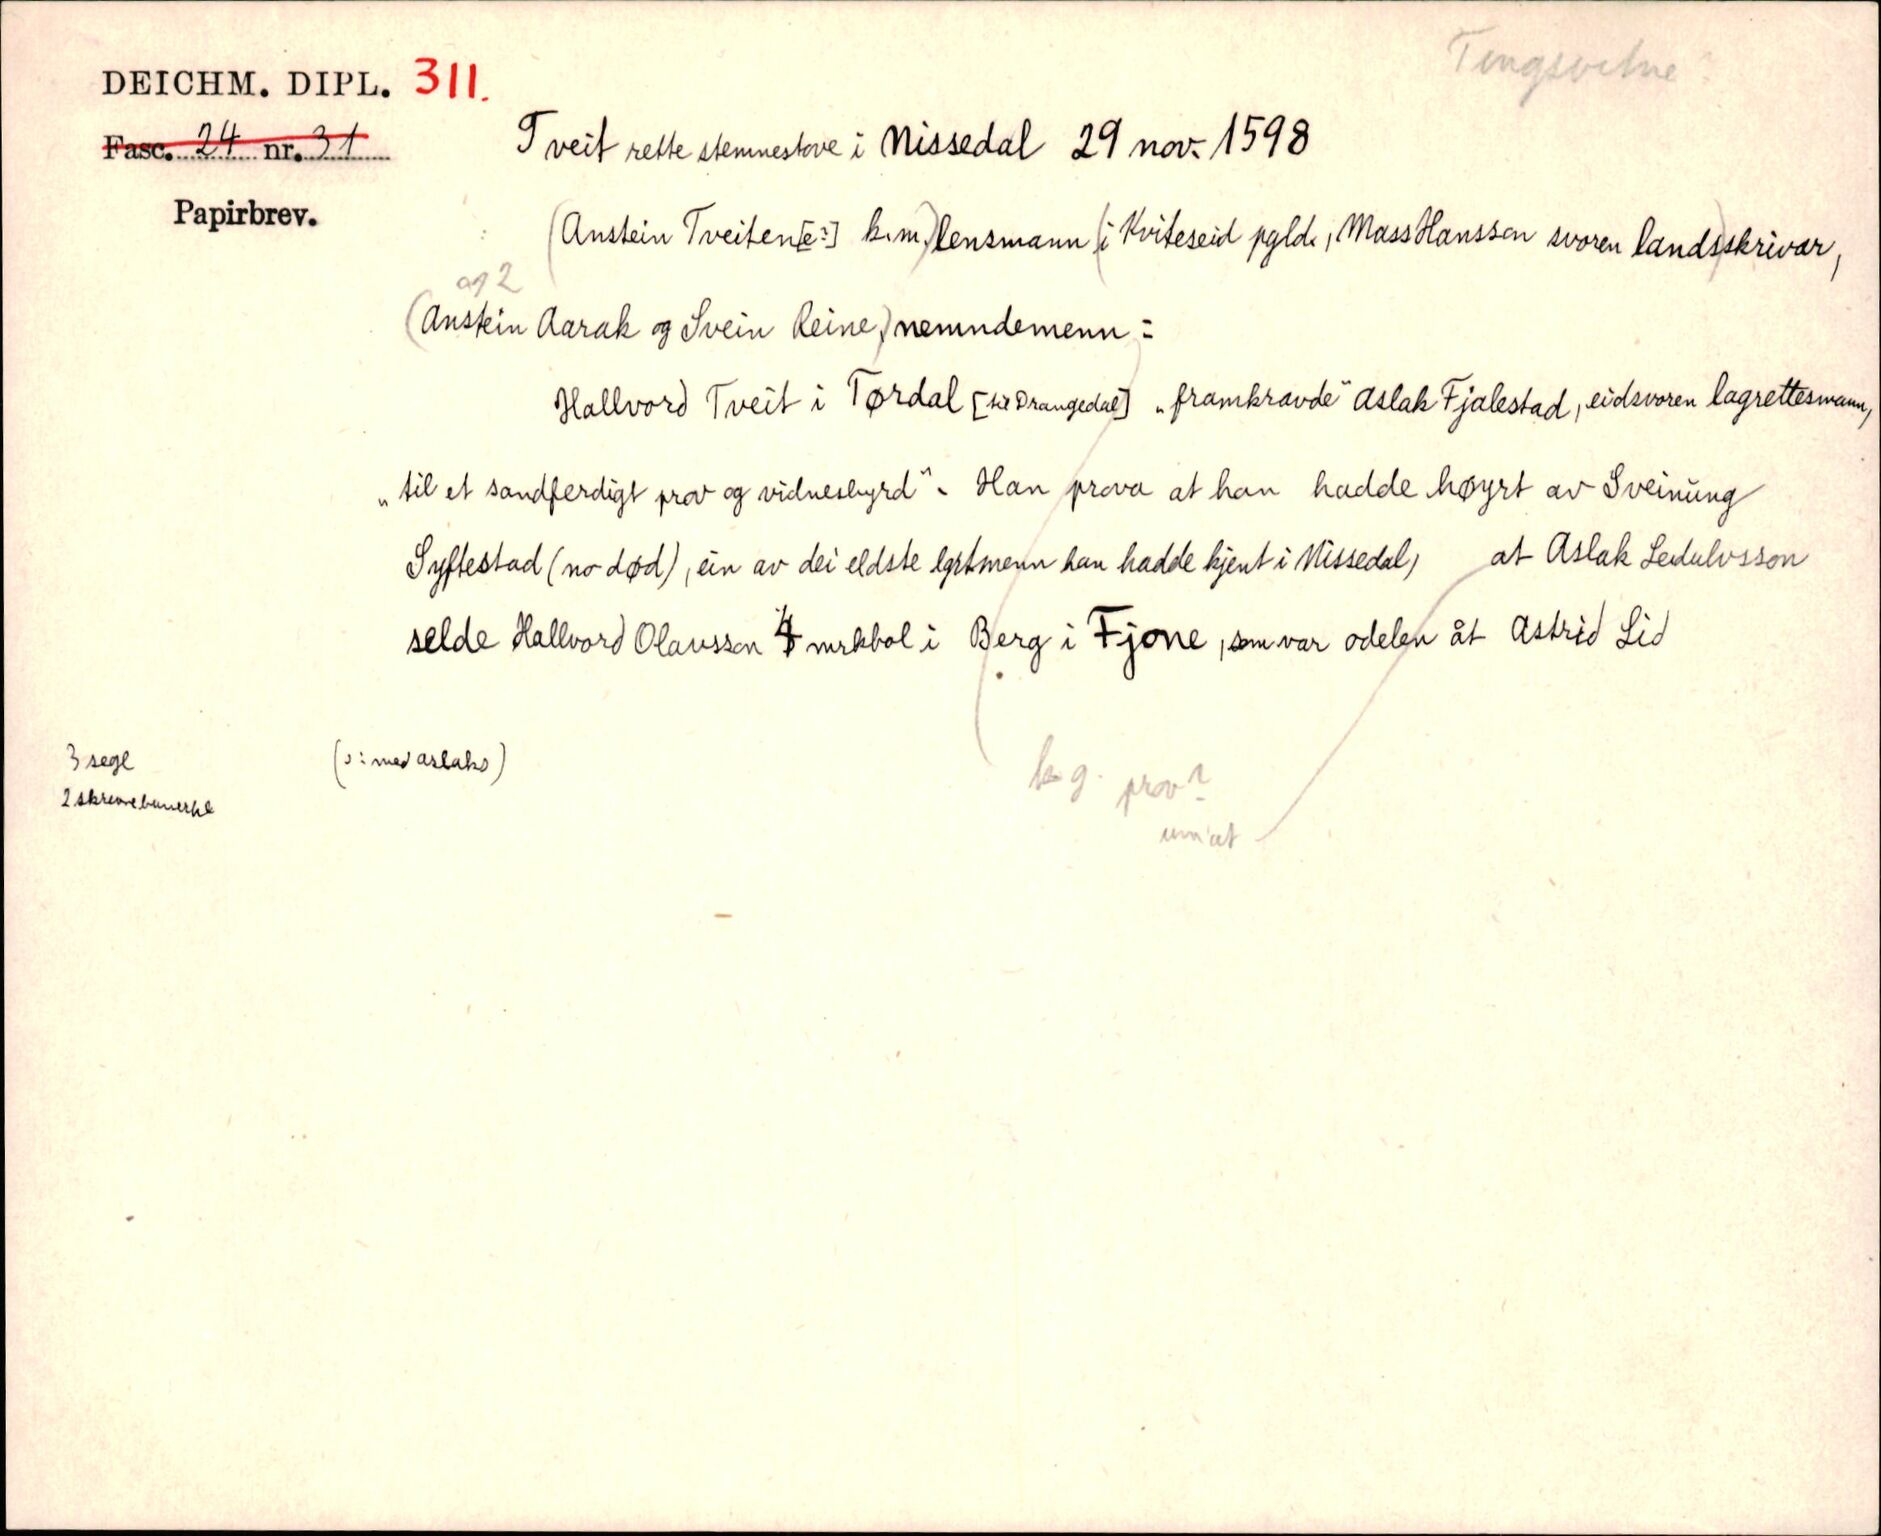 Tingsvitne?
DEICHM. DIPL. 311.
Fasc. 24 nr. 31
Papirbrev.
Tveit rette stemnestove i Nissedal 29 nov. 1598
(Anstein Tveiten[e?] k.m.) lensmann (i Kviteseid pgld., Mass Hansson svoren lands)skrivar,
og 2
(Anstein Aarak og Svein Reine) nemndemenn:
Hallvord Tveit i Tørdal [til Drangedal] „framkravde“ Aslak Fjalestad, eidsvoren lagrettesmann,
„til et sandferdigt prov og vidnesbyrd“. Han prova at han hadde høyrt av Sveinung
Syftestad (no død), ein av dei eldste lgrtmenn han hadde kjent i Nissedal, at Aslak Ledulvsson
selde Hallvord Olavsson 4 mrkbol i Berg i Fjone, som var odelen åt Astrid Lid
3 segl
(ɔ: med Aslaks)
2 skrevne bumerke
k g. prov?
um at